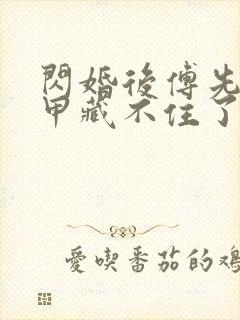 閃婚後傅先
甲藏不住了
愛喫番茄的雞